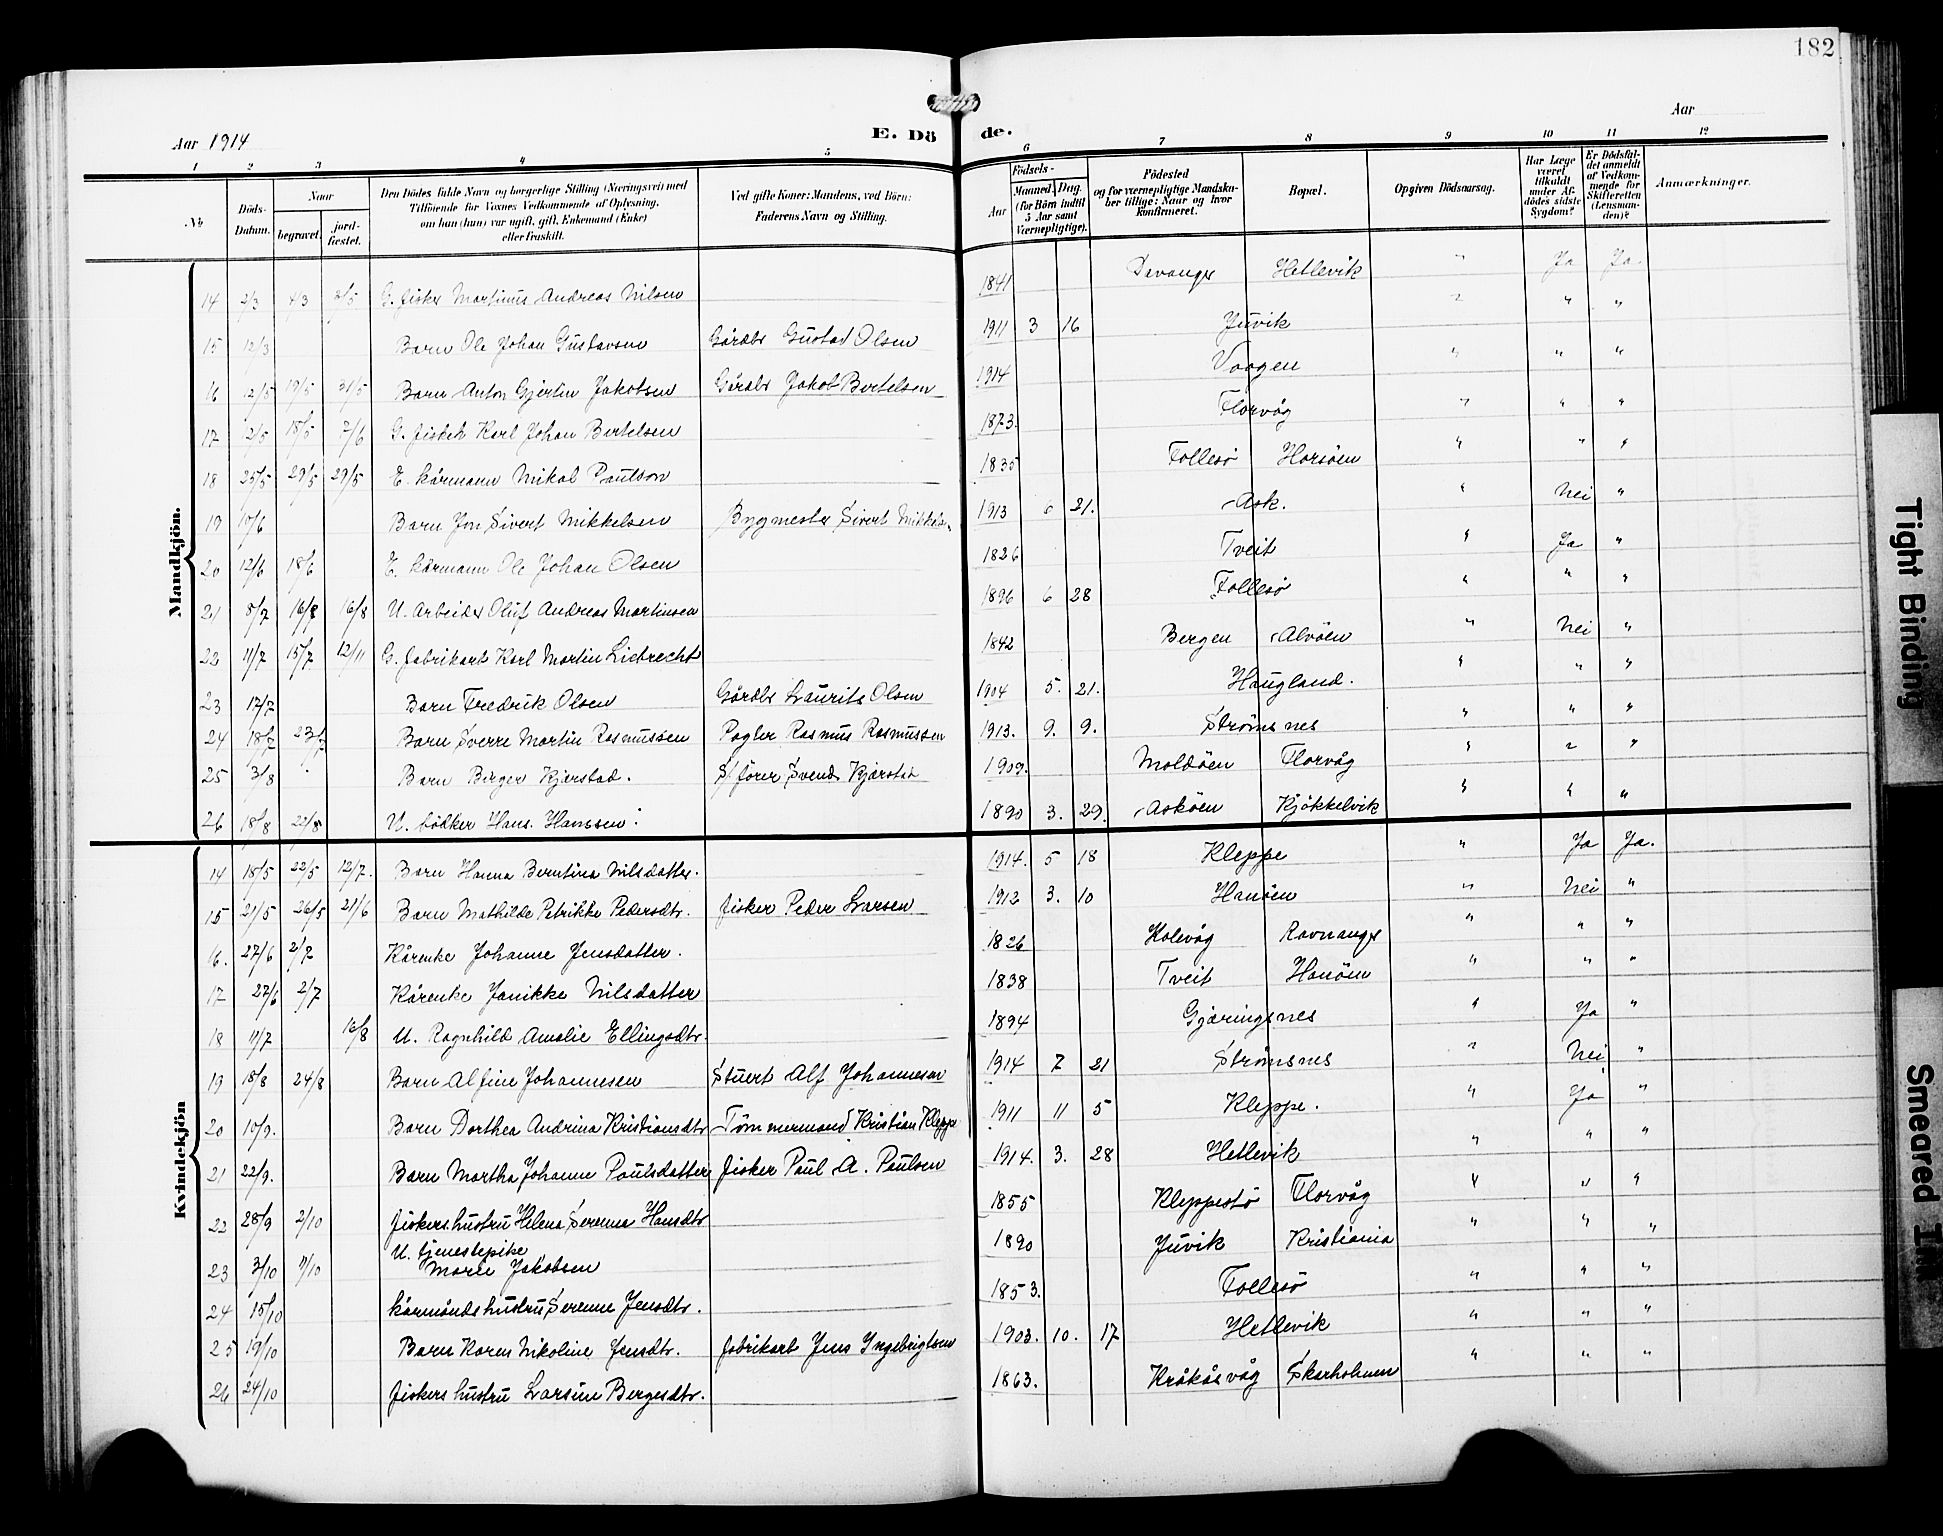 182
Aar 1914 E. Dö de. Aar
1 2 3 4 5 6 7 8 9 10 11 12
№ Döds-Datum. Naar begravet. jord-fæstet. Den Dödes fulde Navn og borgerlige Stilling (Næringsvei) med Tilföiende for Voxnes Vedkommende af Oplysning, om han (hun) var ugift, gift, Enkemand (Enke) eller fraskilt. Ved gifte Koner: Mandens, ved Börn: Faderens Navn og Stilling. Födsels- Aar Maaned. Dag. (for Börn indtil 5 Aar samt Værnepligtige). Födested og for værnepligtige Mandska-ber tillige: Naar og hvor konfirmeret. Bopæl. Opgiven Dödsaarsag. Har Læge været tilkaldt under Af-dödes sidste Sygdom? Er Dödsfal-det anmeldt af Vedkom-mende for Skifteretten (Lensman-den)? Anmærkninger.
Mandkjön.
14 2/3 4/3 2/5 G. fisker Martinus Andreas Nilsen 1841 Davanger Hetlevik " Ja Ja.
15 12/3 Barn Ole Johan Gustavsen Gårdbr Gustav Olsen 1911 3 16 Juvik " " "
16 12/5 19/5 31/5 Barn Anton Gjertin Jakobsen Gårdbr Jakob Bertelsen 1914 Vaagen " " "
17 12/5 18/5 7/6 G. fisker Karl Johan Bertelsen 1873. Florvåg " " "
18 25/5 29/5 29/5 E. kårmann Mikal Paulson 1835 Follesö Horsöen " " "
19 17/6 Barn Jon Sivert Mikkelsen Bygmester Sivert Mikkelsen 1913 6 21. Ask. " Nei "
20 12/6 18/6 E. kårmann Ole Johan Olsen 1826 Tveit " Ja "
21 8/7 16/8 16/8 U. Arbeider Oluf Andreas Martinsen 1896 6 28 Follesö " " "
22 11/7 15/7 12/11 G. fabrikarb Karl Martin Liebrecht 1842 Bergen Alvöen " Nei "
23 17/7 Barn Fredrik Olsen Gårdbr Laurits Olsen 1904 5. 21. Haugland. " " "
24 18/7 23/7 Barn Sverre Martin Rasmussen Pagter Rasmus Rasmussen 1913. 9. 9. Strömsnes " " "
25 3/8 Barn Berger Kjerstad. S/förer Svend Kjærstad 1909. Moldöen Florvåg " " "
26 18/8 22/8 U. bödker Hans. Hanssen. 1890 3. 29. Asköen Kjökkelvik " " "
Kvindekjön
14 18/5 22/5 12/7. Barn Hanna Berntina Nilsdatter. 1914. 5 18 Kleppe " Ja Ja.
15 21/5 26/5 21/6 Barn Mathilde Petrikke Pedersdtr. fisker Peder Larsen 1912 3. 10 Hanöen " Nei "
16. 27/6 2/7 Kårenke Johanne Jensdatter. 1826 Kolevåg Ravnanger " " "
17 27/6 2/7 Kårenke Janikke Nilsdatter 1838 Tveit Hanöen " " "
18 11/7 16/8 U. Ragnhild Amalie Ellingsdtr. 1894 Gjæringsnes " Ja "
19 18/8 24/8 Barn Alfine Johannesen Stuert Alf Johannesen 1914 7 21 Strömsnes " Nei "
20 10/9. Barn Dorthea Andrina Kristiansdtr Tömmermand Kristian Kleppe 1911 11 5 Kleppe. " Ja "
21 22/9. Barn Martha Johanne Paulsdatter fisker Paul A. Paulsen 1914. 3. 28 Hetlevik " " "
22 28/9 2/10 fiskers hustru Helena Serenna Hansdtr 1855 Kleppestö Florvåg " " "
23 3/10 11/10 U. tjenestepike Marie Jakobsen 1890 Juvik Kristiania " " "
24 15/10 kårmands hustru Serenne Jensdtr. 1853. Follesö " " "
25 19/10 Barn Karen Nikoline Jensdtr. fabrikarb Jens Ingebrigtsen 1903. 10. 17 Hetlevik " " "
26 24/10 fiskers hustru Larsine Bergesdtr. 1863. Kråkåsvåg Skarholmen " " "
Tight Binding
Smeared Ink